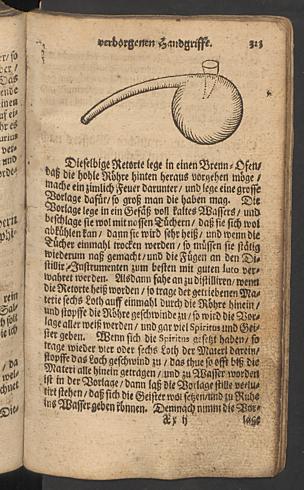 verborgenen Handgriffe. 323
Dieselbige Retorte lege in einen Brenn-Ofen/
daß die hohle Röhre hinten heraus vorgehen möge/
mache ein zimlich Feuer darunter/ und lege eine grosse
Vorlage dafür/ so groß man die haben mag. Die
Vorlage lege in ein Gefäß voll kaltes Wassers/ und
beschlage sie wol mit nassen Tüchern/ daß sie sich wol
abkühlen kan/ dann sie wird sehr heiß/ und wenn die
Tücher einmahl trocken werden/ so müssen sie stätig
wiederum naß gemacht/ und die Fügen an den Di-
stillir-Instrumenten zum besten mit guten luto ver-
wahret werden. Alsdann fahe an zu distilliren/ wenn
die Retorte heiß worden/ so trage der getriebenen Ma-
terie sechs Loth auff einmahl durch die Röhre hinein/
und stopffe die Röhre geschwinde zu/ so wird die Vor-
lage aller weiß werden/ und gar viel Spiritus und Gei-
ster geben. Wenn sich die Spiritus gesetzt haben/ so
trage wieder vier oder sechs Loth der Materi darein/
stopffe das Loch geschwind zu/ das thue so offt biß die
Materi alle hinein getragen/ und zu Wasser worden
ist in der Vorlage/ dann laß die Vorlage stille verlu-
tirt stehen/ daß sich die Geister wol setzen/ und zu Ruhe
ins Wasser geben können. Demnach nimm die Vor-
Xx ij lage